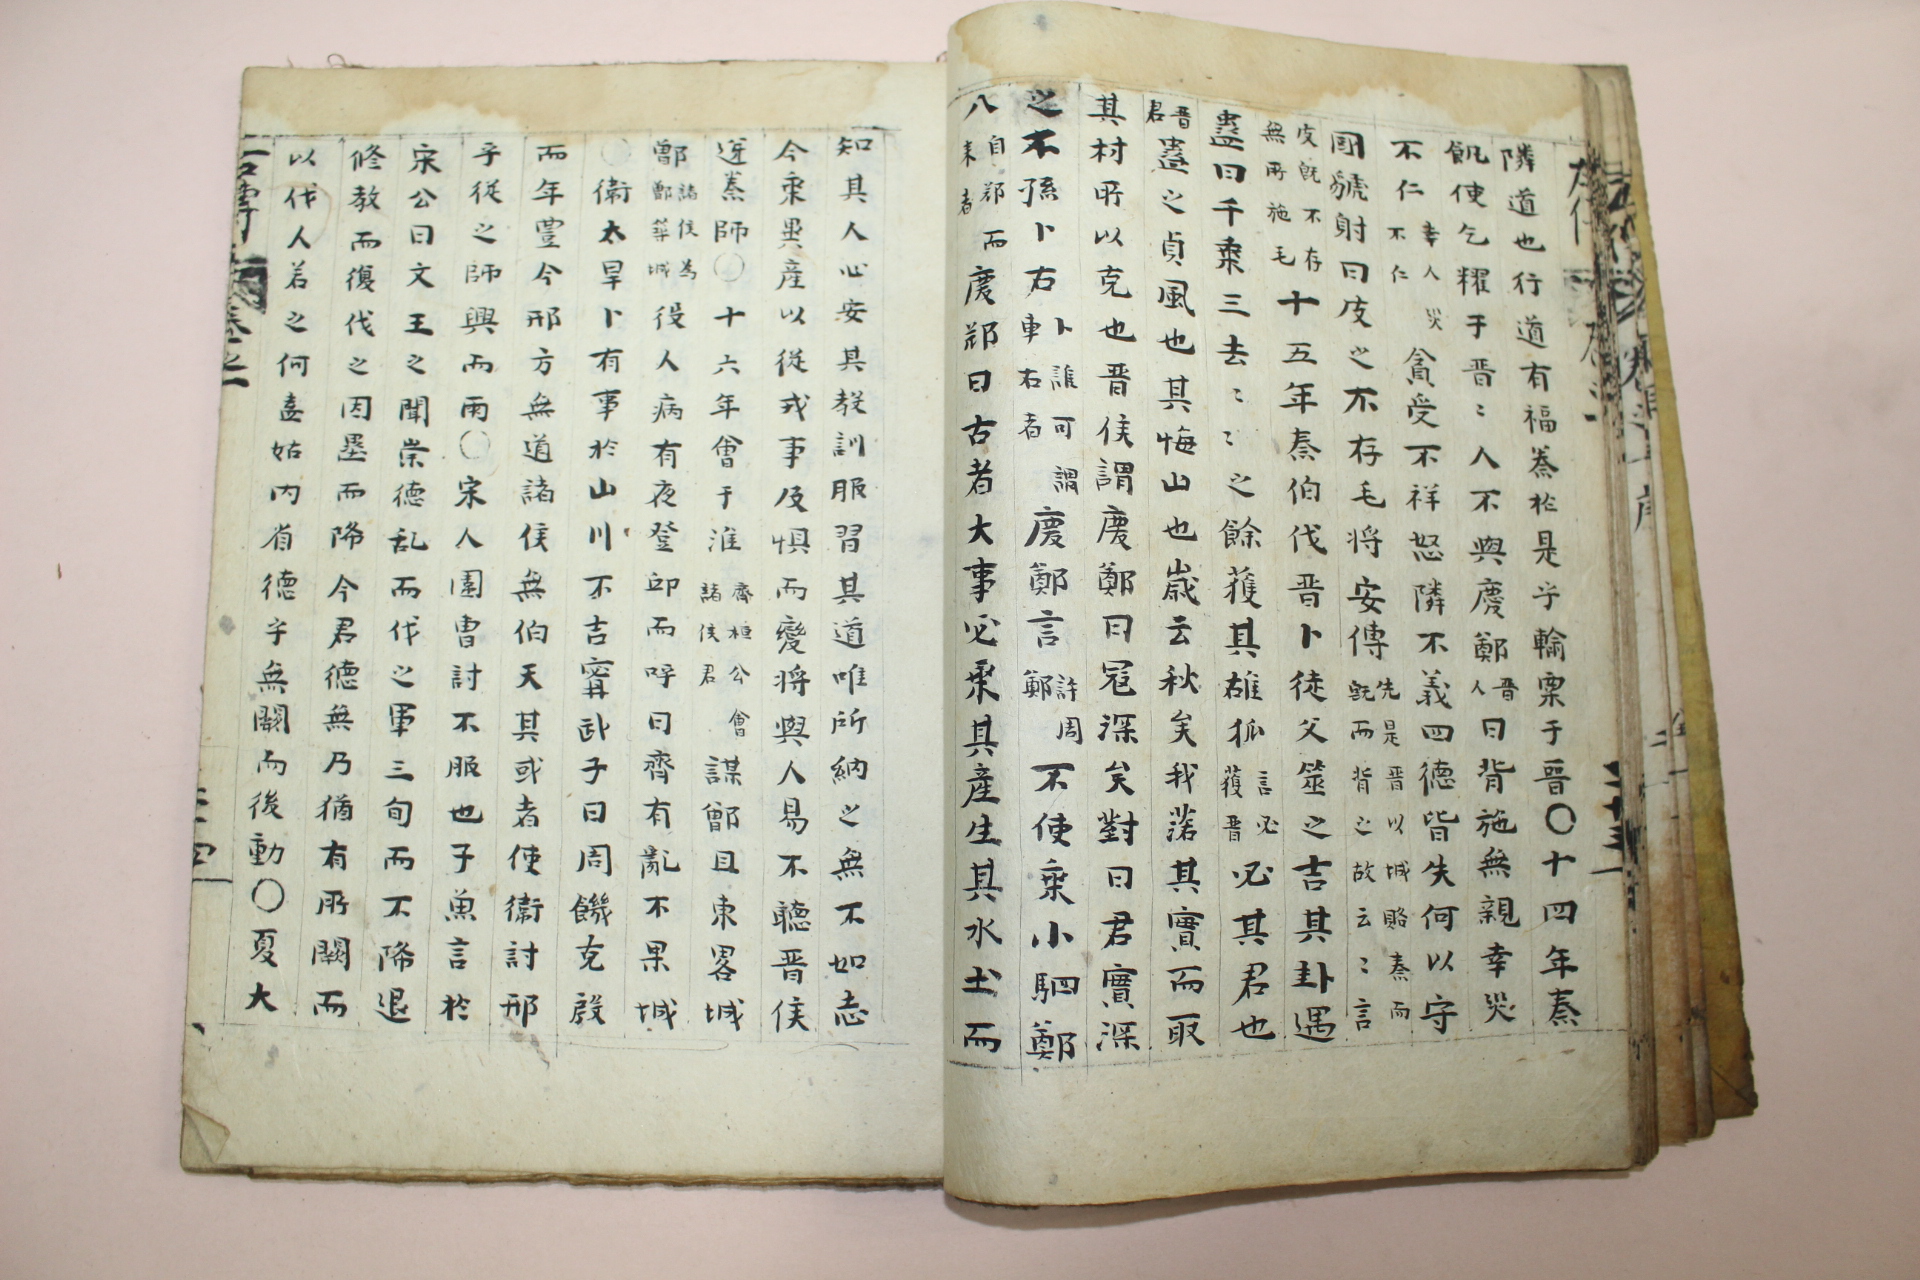 隣道也行道有福秦於是乎輸粟于晋〇十四年秦
飢使乞糴于晋〻人不與慶鄭晋人曰背施無親幸災
不仁幸人災不仁貪受不祥怒隣不義四德皆失何以守
國虢射曰皮之不存毛將安傅先是晋以城賂秦而既而背之故云〻言
皮既不存無所施毛十五年秦伯伐晋卜徒父筮之吉其卦遇
蠱曰千乘三去〻〻之餘獲其雄狐言必獲晋必其君也
晋君蠱之貞風也其悔山也歲云秋矣我落其實而取
其材所以克也晋侯謂慶鄭曰冦深矣對曰君實深
之不孫卜右卜誰可謂車右者慶鄭言許周鄭不使乗小駟鄭
八自鄭而来者慶鄭曰古者大事必乗其産生其水土而
知其人心安其教訓服習其道唯所納之無不如志
今乗異産以從戎事及惧而變將與人易不聴晋侯
逆秦師〇十六年會于淮齊桓公會諸侯君謀鄫且東畧城
鄫諸侯為鄫築城役人病有夜登邱而呼曰齊有亂不果城
〇衛太旱卜有事於山川不吉甯武子曰周饑克殷
而年豊今邢方無道諸侯無伯天其或者使衛討邢
乎從之師興而雨〇宋人圍曺討不服也子魚言於
宋公曰文王之聞崇德乱而伐之軍三旬而不降退
修教而復伐之因壘而降今君德無乃猶有所闕而
以伐人若之何盍姑內省德乎無闕而後動〇夏大